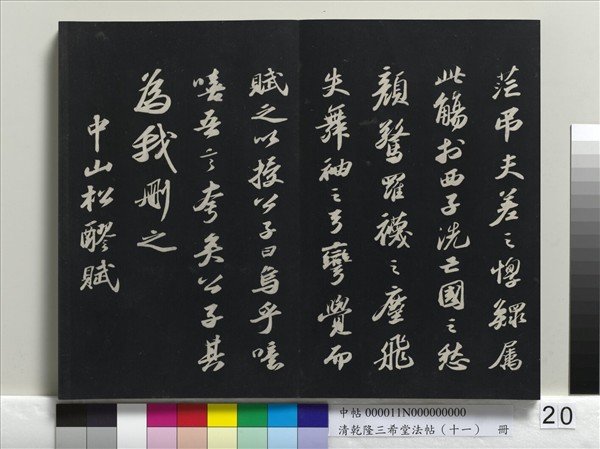 茫吊夫差之惸鰥属
此觴於西子洗亡國之愁
顔驚羅襪之塵飛
失舞袖之弓彎覺而
賦之以授公子曰烏乎噫
嘻吾言夸矣公子其
為我刪之
中山松醪賦
中帖 000011N000000000
清乾隆三希堂法帖(十一) 冊
20